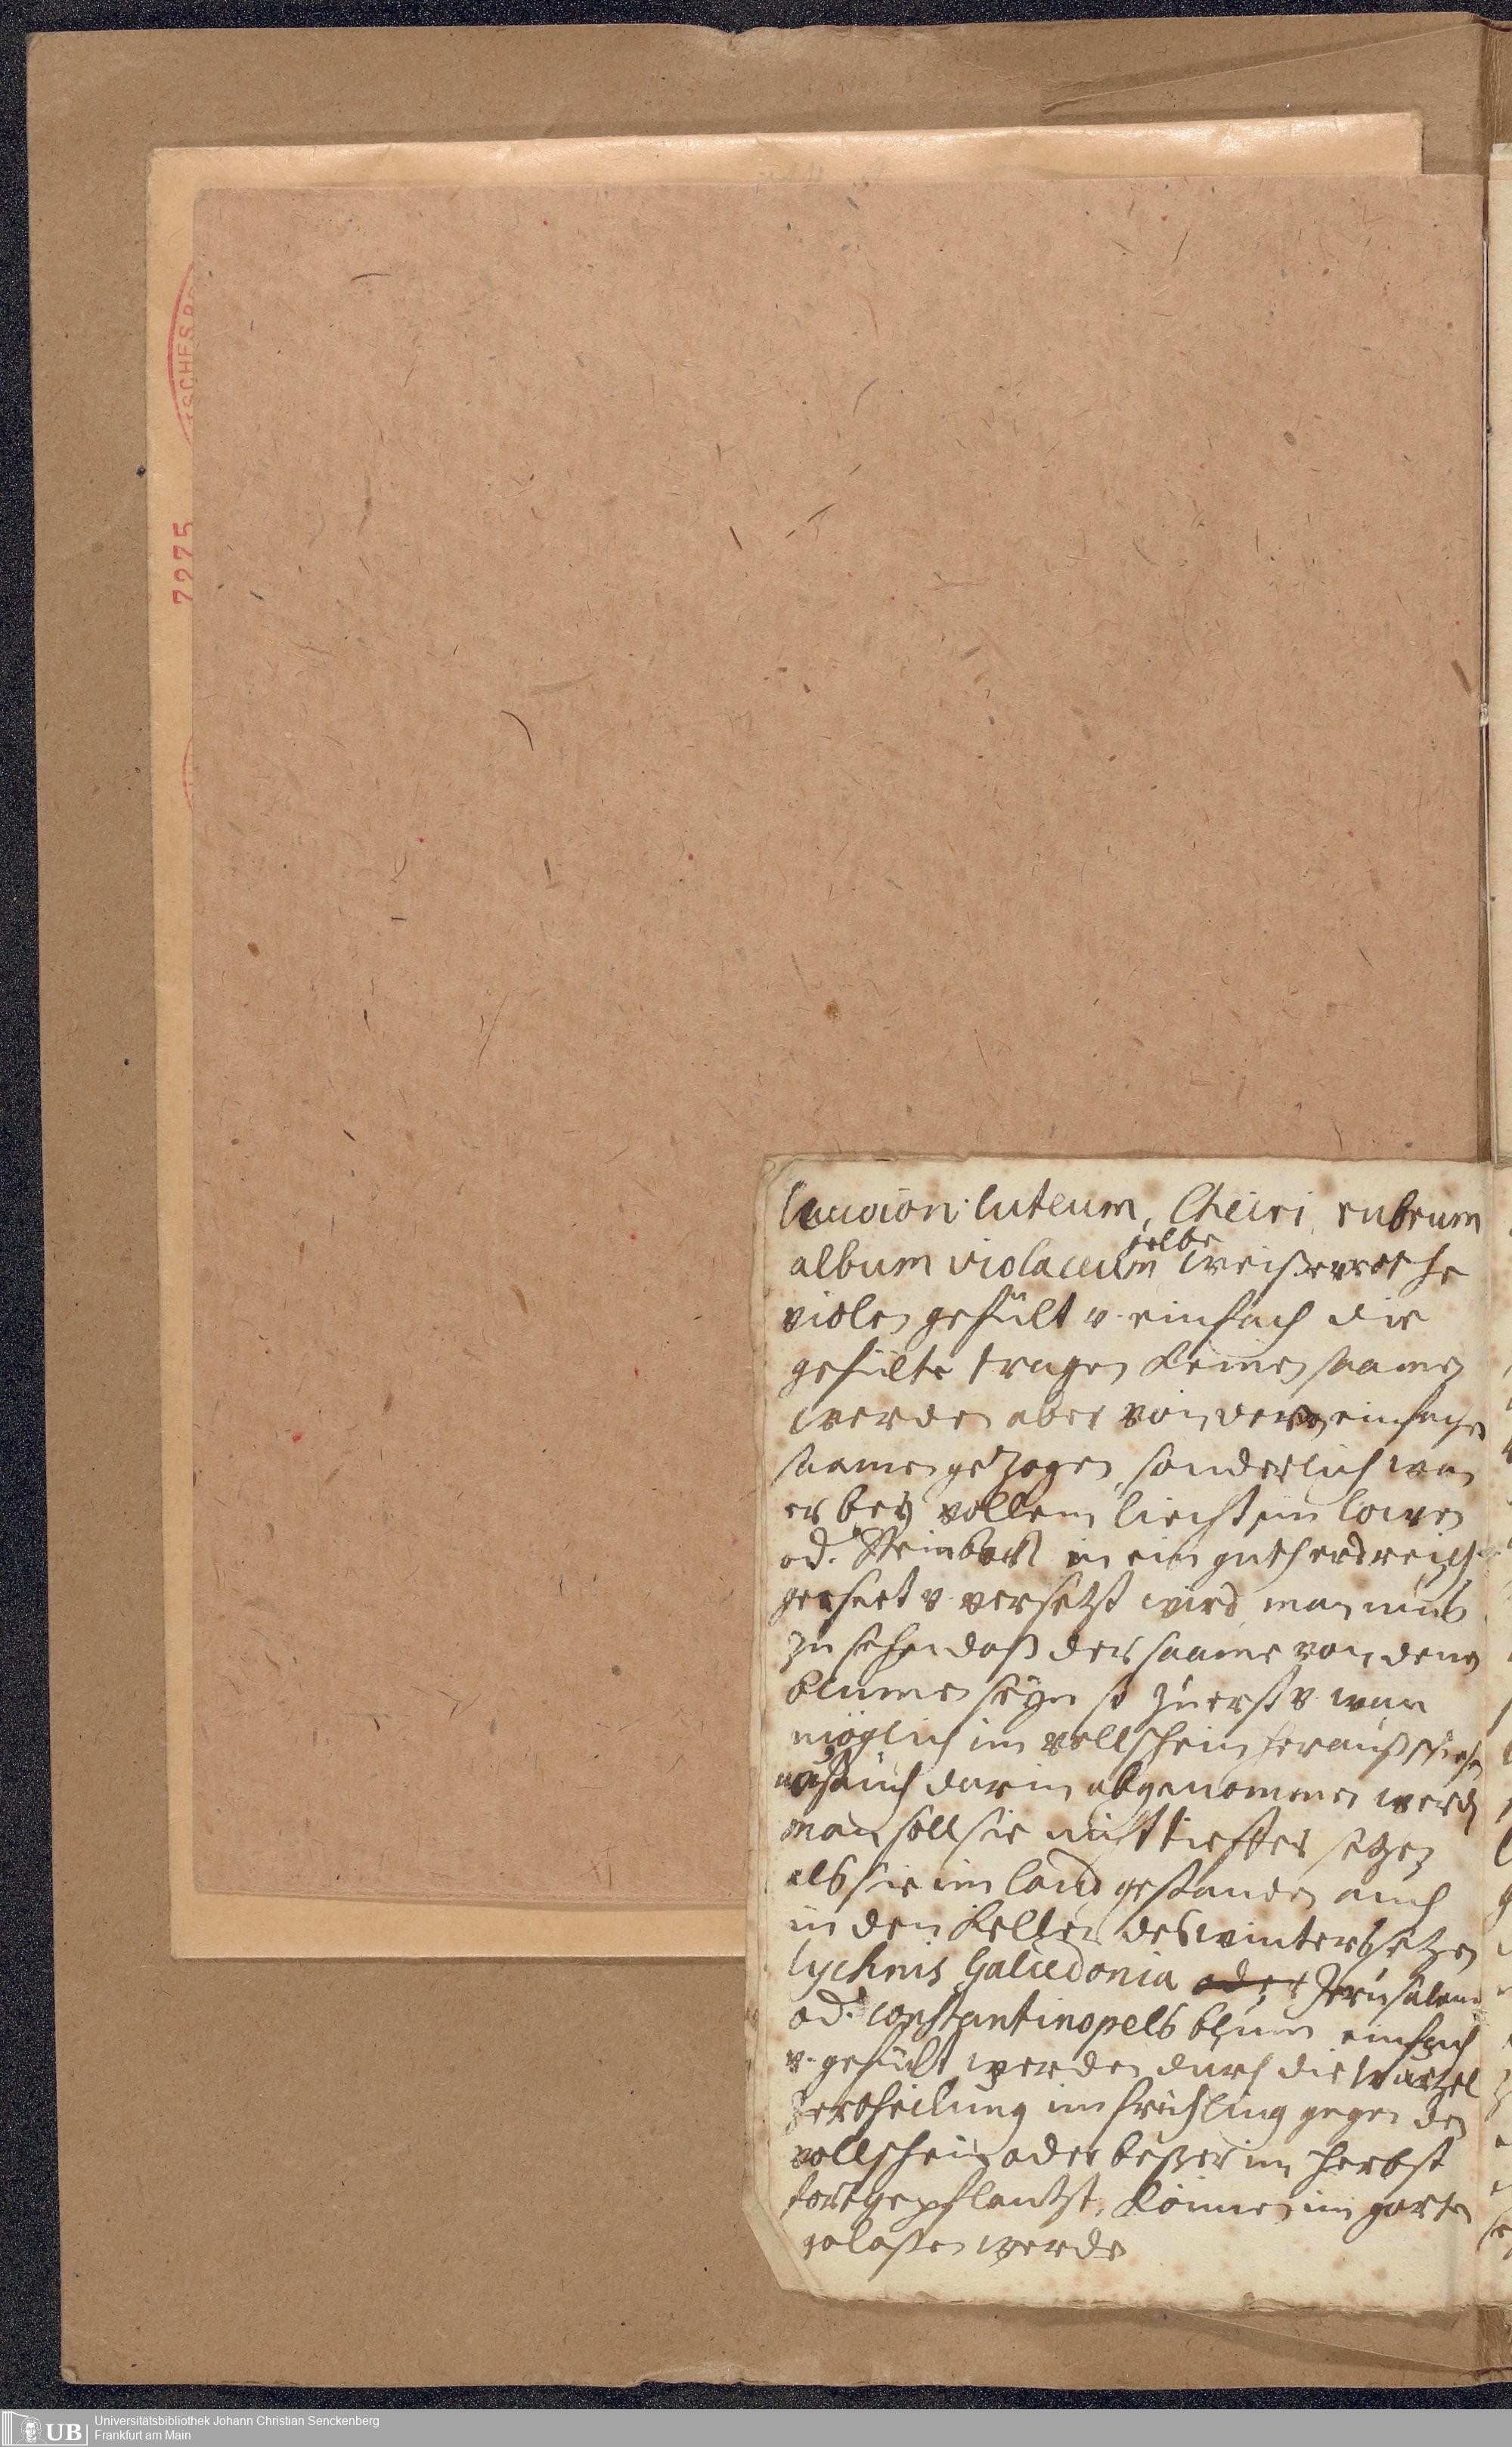 leucoion luteum, Cheiri rubrum
album violaceum gelbe weiße rothe
violen gefült v. einfach die
gefülte tragen keinen saamen
werden aber von deren einfachen
saamen gezogen, sonderlich wan
er bey vollem liecht im lowen
od. Steinbock in ein guth erdreich
gesaet v. versetzt wird man mus
zu sehen daß der saame von denen
blumen seyn so zuerst v. wan
möglich im vollschein
auch darin abgenommen werden
man soll sie nicht tieffer setzen
als sie im land gestanden auch
in den keller des winters setzen
lychnis Calcedonia oder Jerusalem
od. Constantinopels blum einfach
v. gefült werden durch die wurzel
zertheilung im frühling gegen den
vollschein oder beßer im herbst
fortgepflantzt, können im garten
gelaßen werden
7275
UB
Universitätsbibliothek Johann Christian Senckenberg
Frankfurt am Main